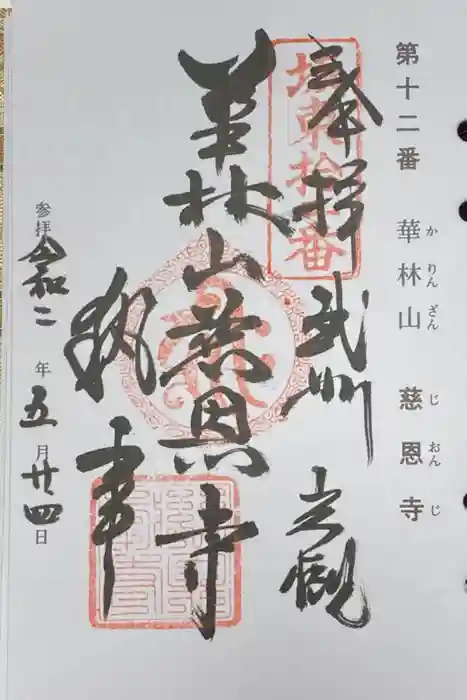 第十二番 華林山 慈恩寺
かりんざん じおんじ
奉拝 武州 岩槻
華林山慈恩寺
執事
参拝 令和二年五月廿四日